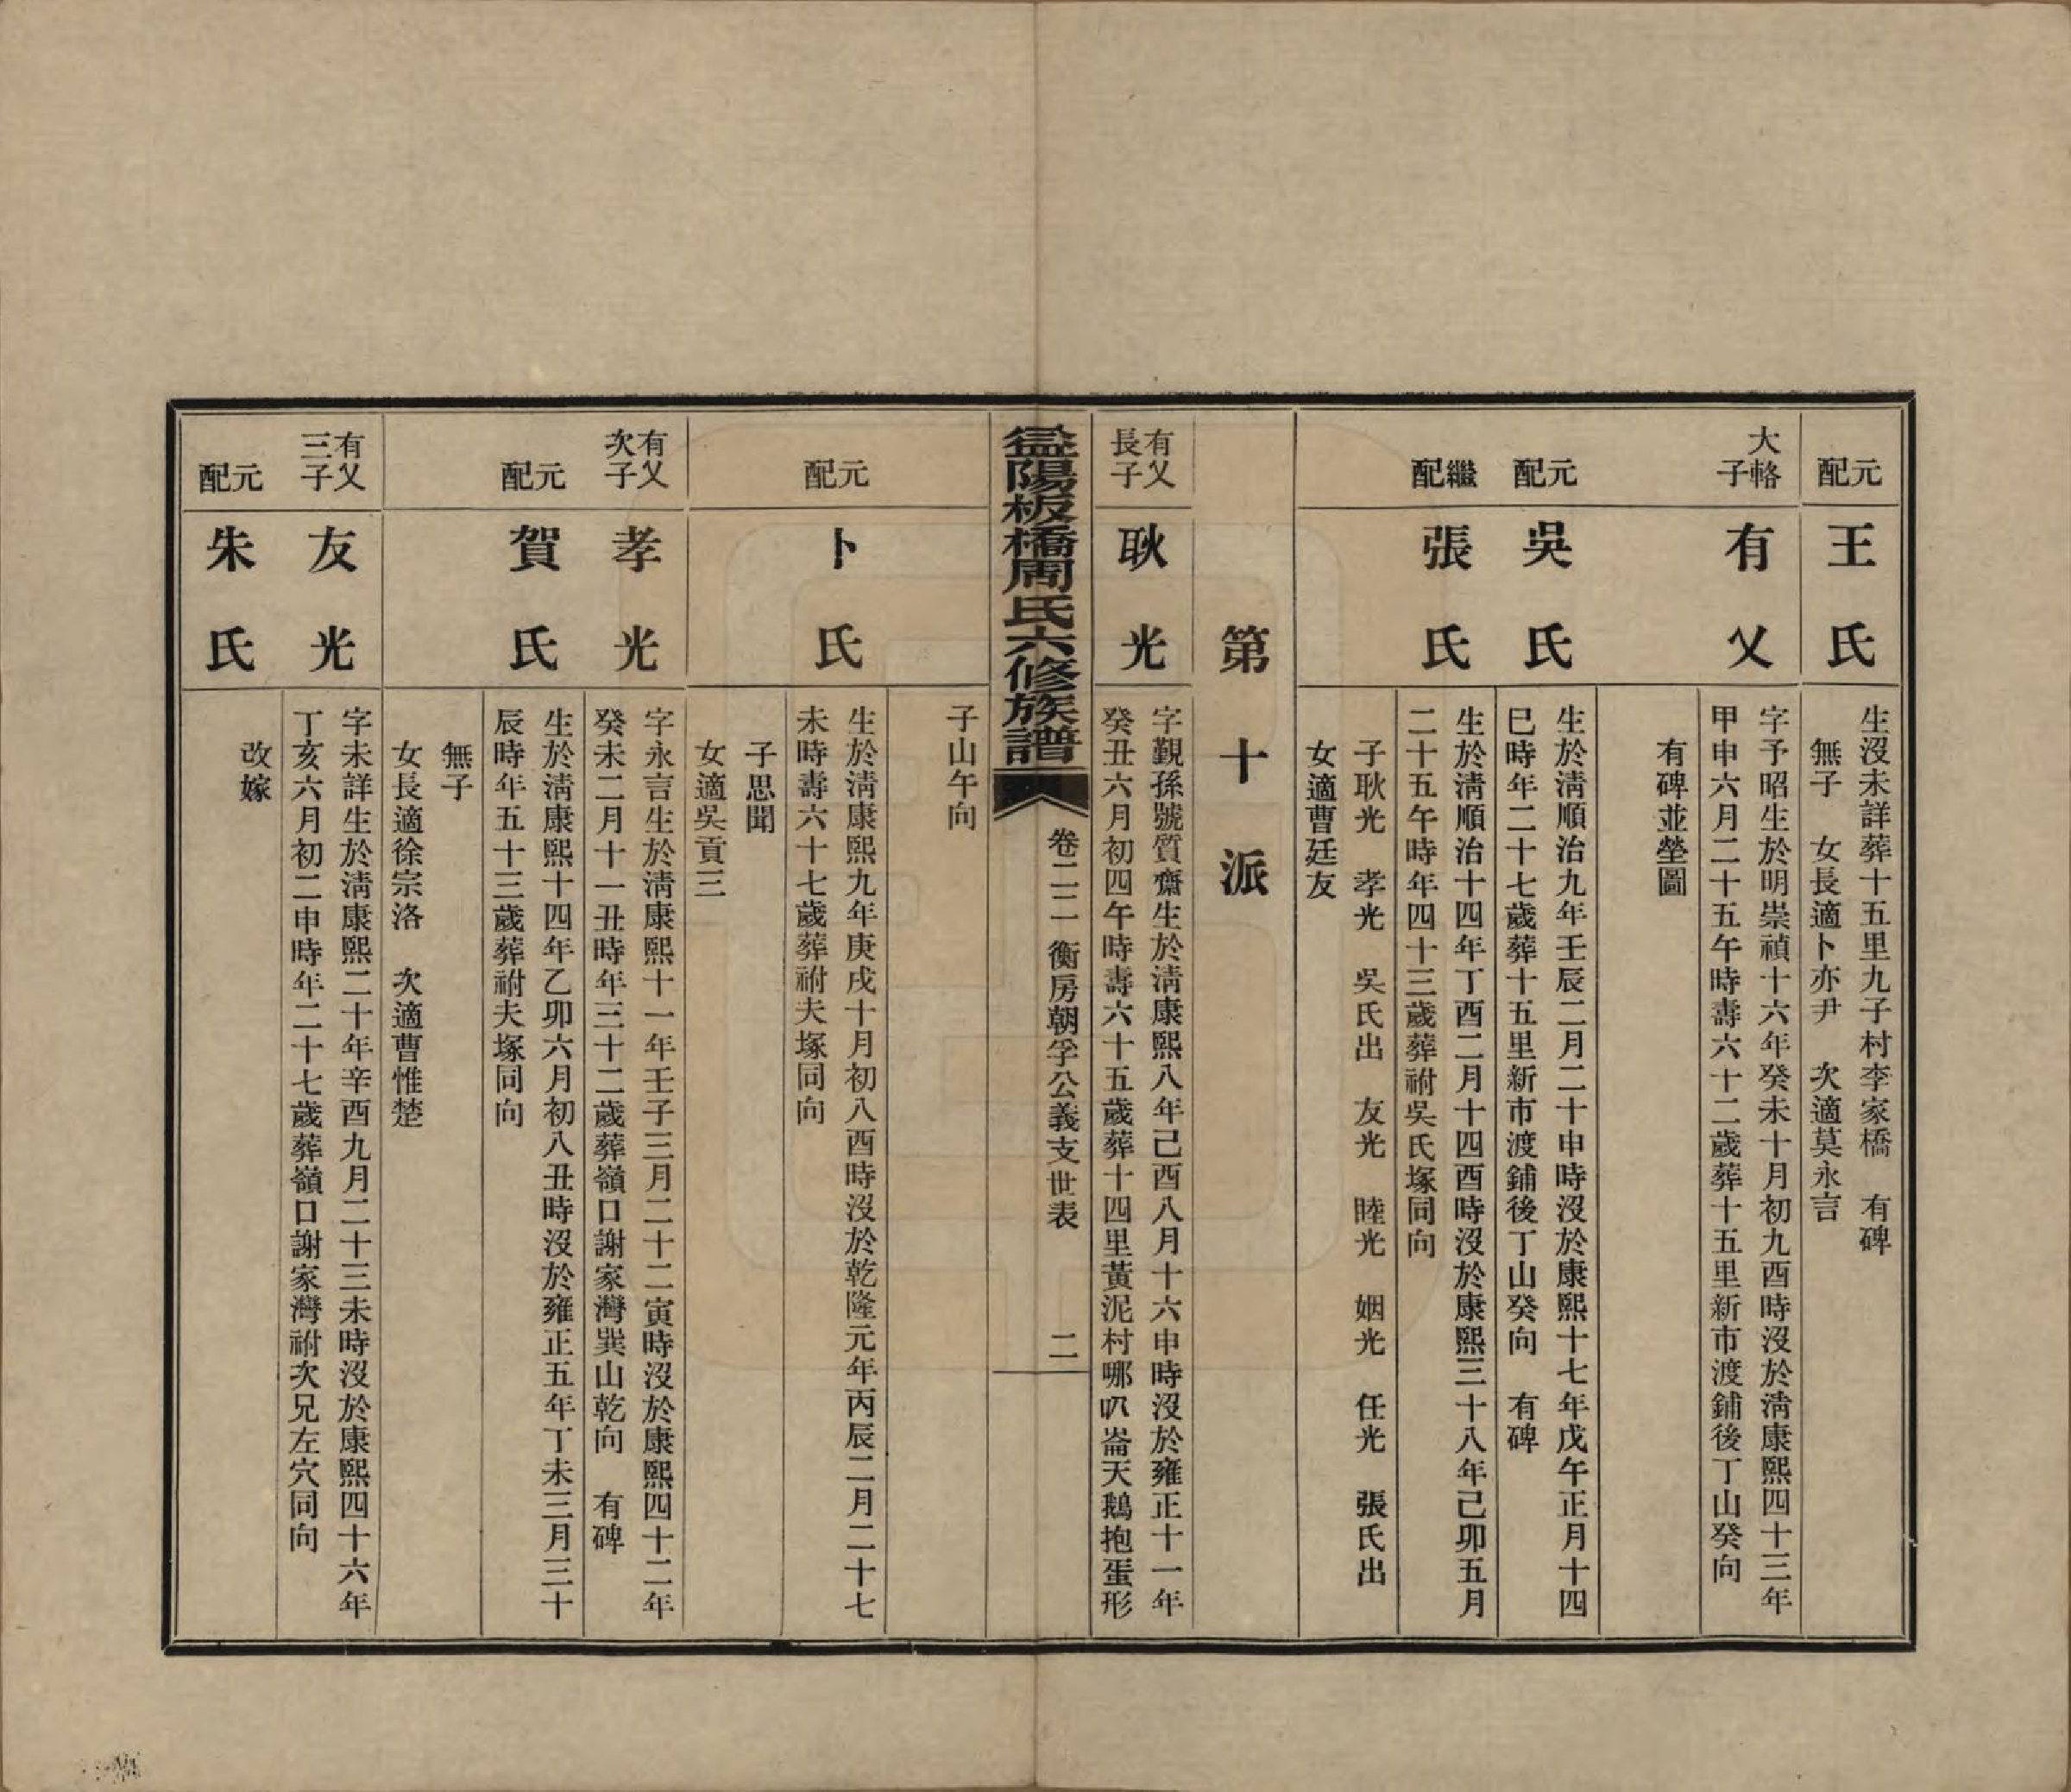 元配
王氏
生沒未詳葬十五里九子村李家橋　有碑
無子　女長適卜亦尹　次適莫永言
大輅子
有乂
字予昭生於明崇禎十六年癸未十月初九酉時沒於清康熙四十三年
甲申六月二十五午時壽六十二歲葬十五里新市渡鋪後丁山癸向
有碑並塋圖
元配
吳氏
生於清順治九年壬辰二月二十申時沒於康熙十七年戊午正月十四
巳時年二十七歲葬十五里新市渡鋪後丁山癸向　有碑
繼配
張氏
生於清順治十四年丁酉二月十四酉時沒於康熙三十八年己卯五月
二十五午時年四十三歲葬祔吳氏塚同向
子耿光　孝光　吳氏出　友光　睦光　姻光　任光　張氏出
女適曹廷友
第十派
有乂長子
耿光
字覲孫號質齋生於清康熙八年己酉八月十六申時沒於雍正十一年
癸丑六月初四午時壽六十五歲葬十四里黃泥村哪叭崙天鵝抱蛋形
益陽板橋周氏六修族譜
卷二二　衡房朝孚公義支世表
二
子山午向
元配
卜氏
生於清康熙九年庚戌十月初八酉時沒於乾隆元年丙辰二月二十七
未時壽六十七歲葬祔夫塚同向
子思聞
女適吳貢三
有乂次子
孝光
字永言生於清康熙十一年壬子三月二十二寅時沒於康熙四十二年
癸未二月十一丑時年三十二歲葬嶺口謝家灣巽山乾向　有碑
元配
賀氏
生於清康熙十四年乙卯六月初八丑時沒於雍正五年丁未三月三十
辰時年五十三歲葬祔夫塚同向
無子
女長適徐宗洛　次適曹惟楚
有乂三子
友光
字未詳生於清康熙二十年辛酉九月二十三未時沒於康熙四十六年
丁亥六月初二申時年二十七歲葬嶺口謝家灣祔次兄左穴同向
元配
朱氏
改嫁